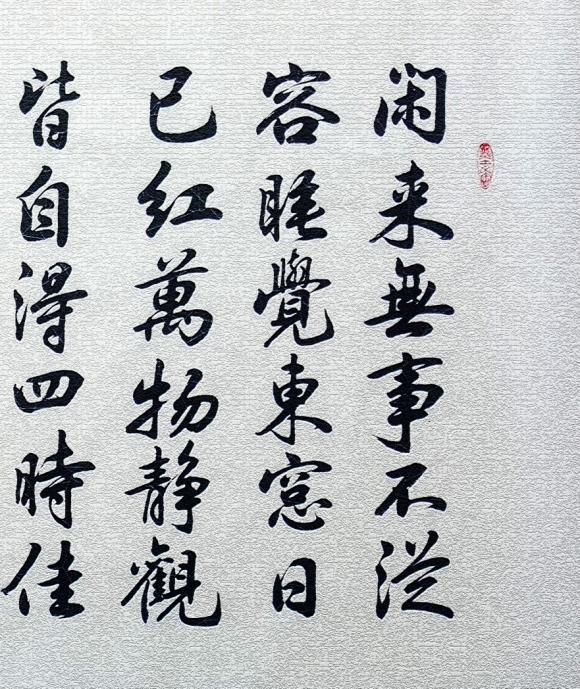 閑来無事不従
容睡覺東窓日
已紅萬物静觀
皆自得四時佳